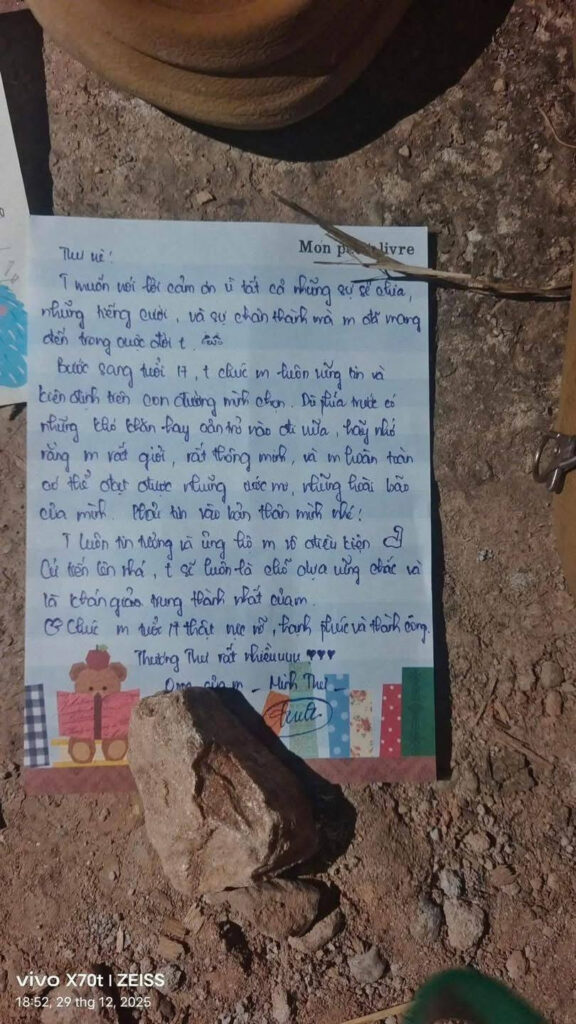 Mon petit livre
Thư nè!
T muốn nói lời cảm ơn vì tất cả những sự sẻ chia,
những tiếng cười, và sự chân thành mà m đã mang
đến trong cuộc đời t.
Bước sang tuổi 17, t chúc m luôn vững tin và
kiên định trên con đường mình chọn. Dù phía trước có
những khó khăn hay cản trở nào đi nữa, hãy nhớ
rằng m rất giỏi, rất thông minh, và m hoàn toàn
có thể đạt được những ước mơ, những hoài bão
của mình. Phải tin vào bản thân mình nhé!
T luôn tin tưởng và ủng hộ m vô điều kiện
Cứ tiến lên nhá, t sẽ luôn là chỗ dựa vững chắc và
là khán giả trung thành nhất của m.
Chúc m tuổi 17 thật rực rỡ, hạnh phúc và thành công.
Thương Thư rất nhiềuuuu ♥♥♥
của m - Minh Thư -
vivo X70t | ZEISS
18:52, 29 thg 12, 2025